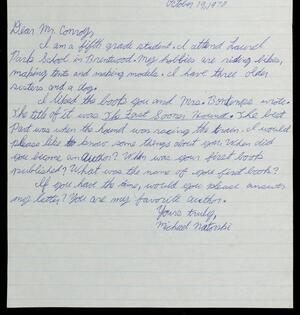 October 19, 1970
Dear Mr. Conroy,
I am a fifth grade student. I attend Laurel
Park School in Brentwood. My hobbies are riding bikes,
making tents and making models. I have three older
sisters and a dog.
I liked the book you and Mrs. Bontemps wrote.
The title of it was The Fast Sooner Hound. The best
part was when the hound was racing the train. I would
please like to know some things about you. When did
you become an Author? When was your first book
published? What was the name of your first book?
If you have the time, would you please answer
my letter? You are my favorite author.
Yours truly,
Michael